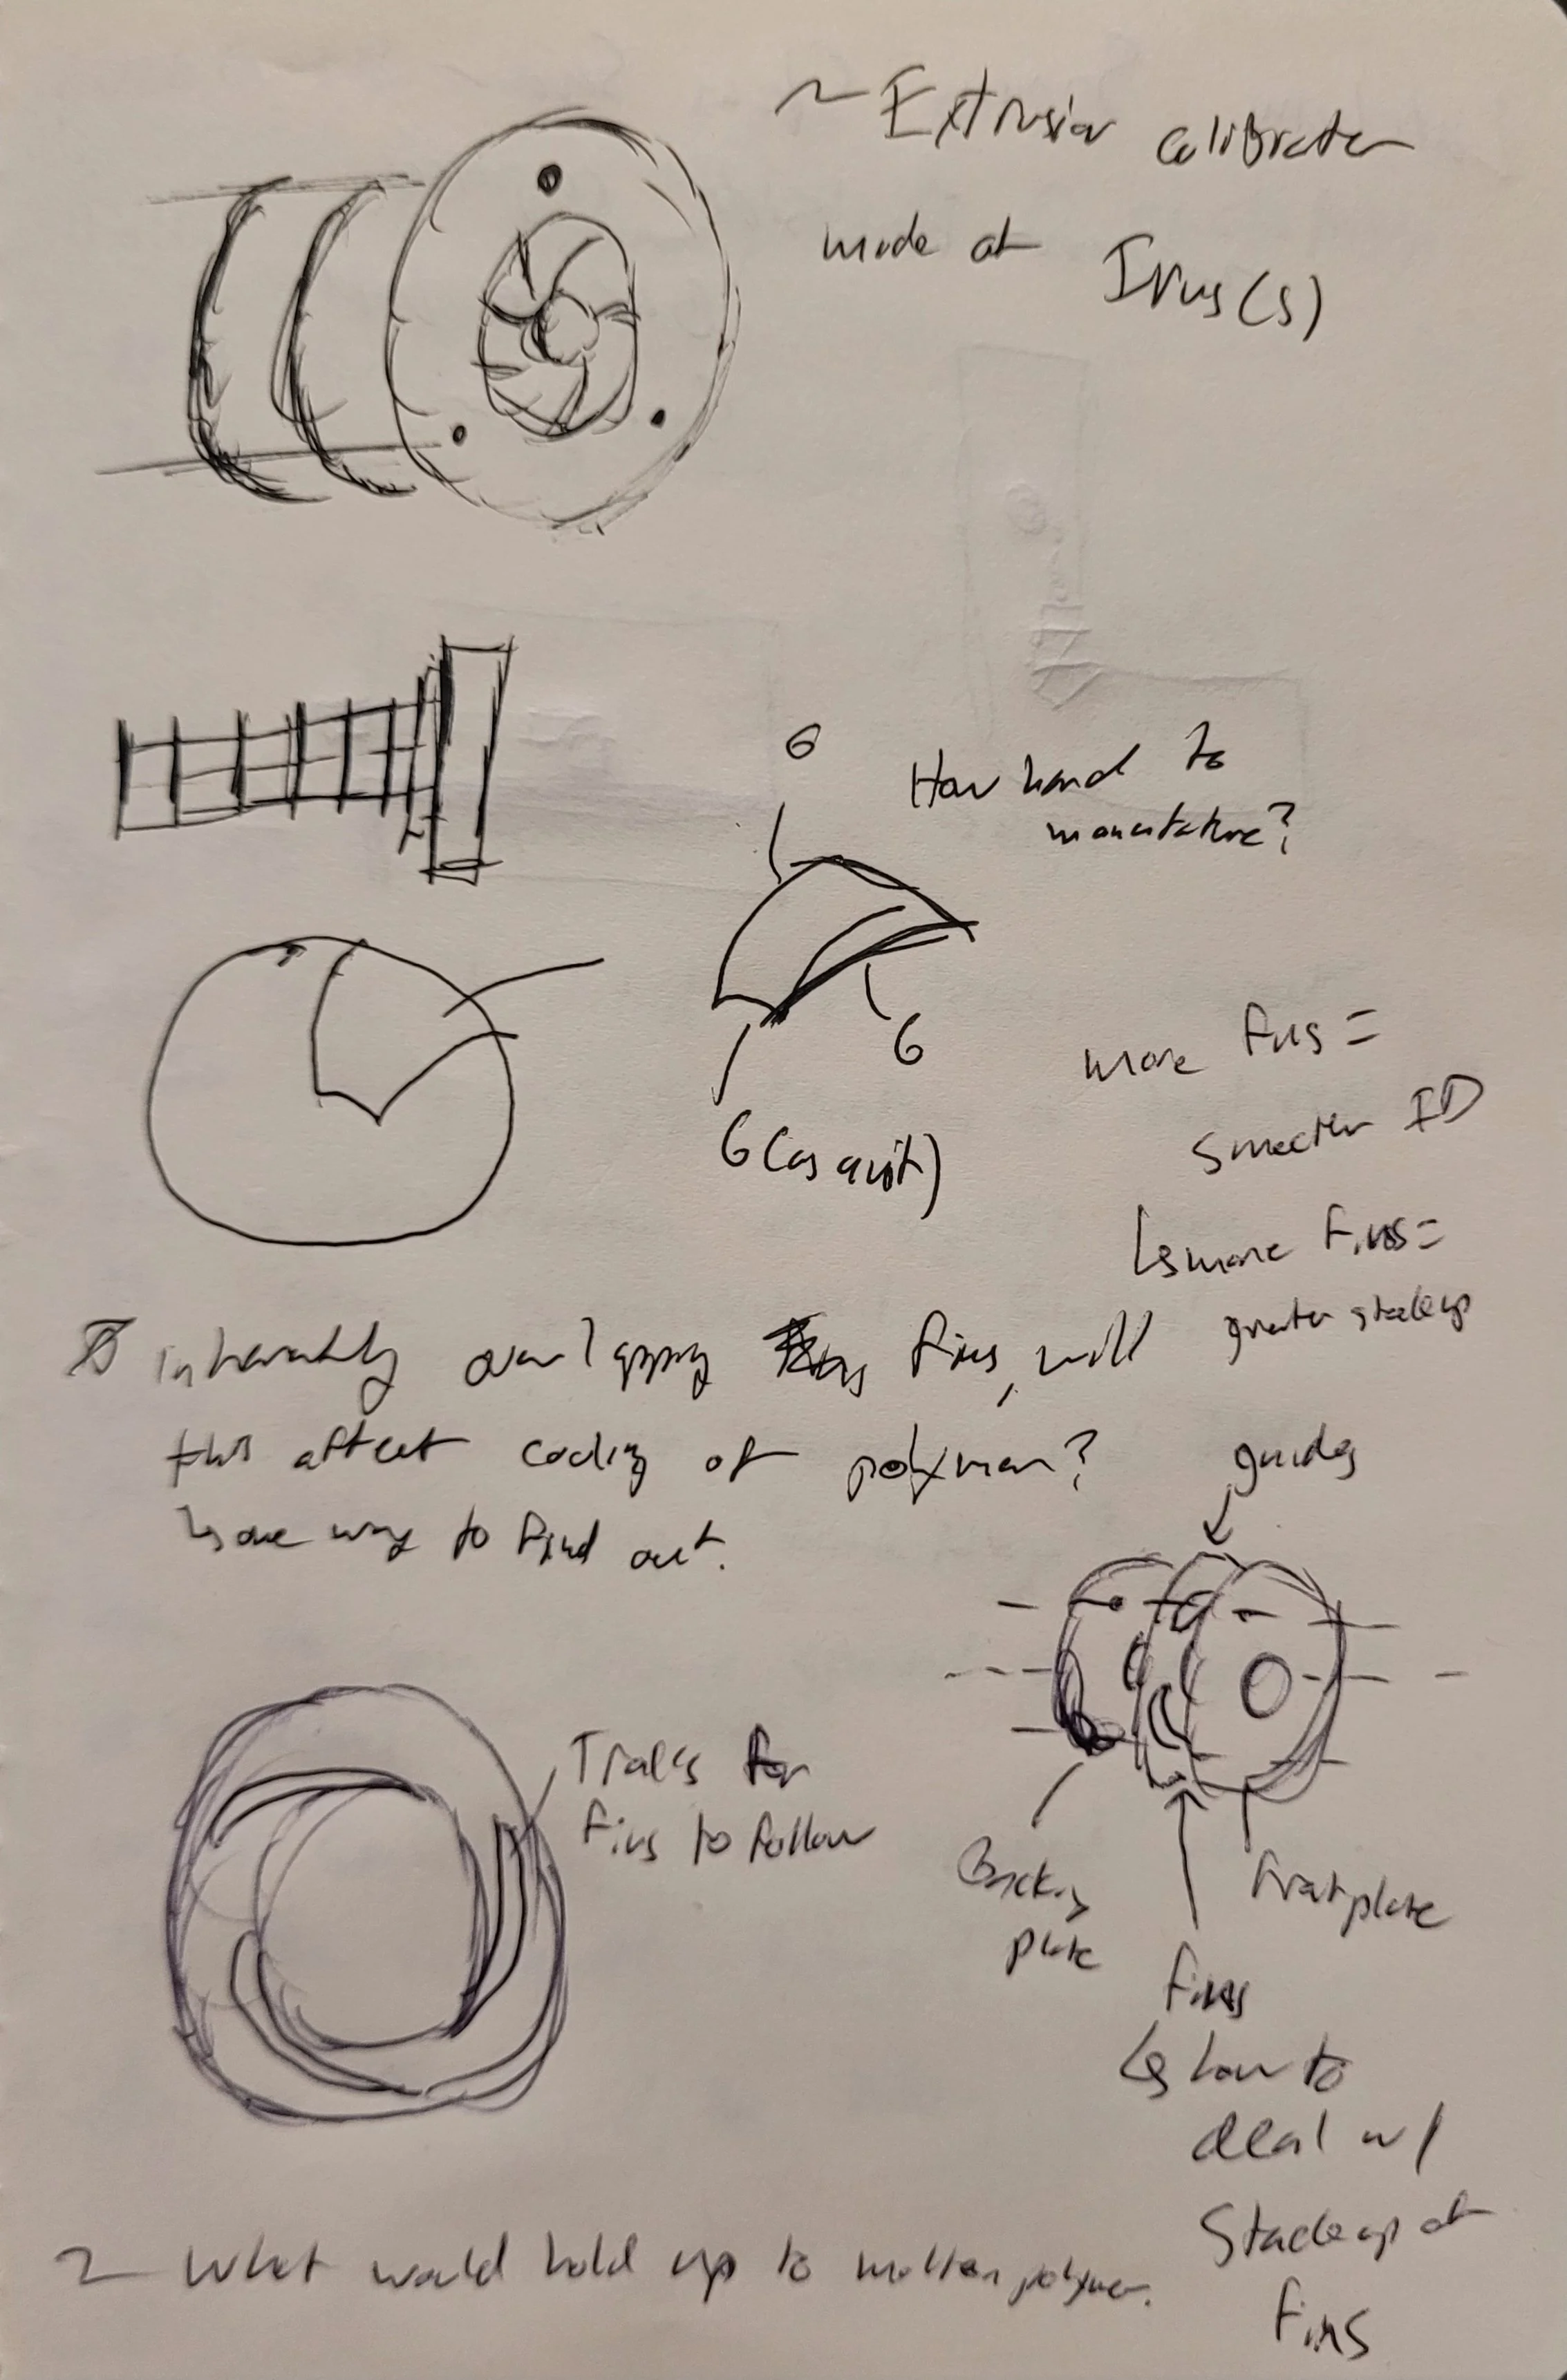 ~ Extrusion calibrator
made at Irus(s)
6
How hard to
manufacture?
6
6 (as a unit)
more fins =
smaller ID
↳ more fins =
greater stackup
inherently overlapping fins, will
this affect cooling of polymer?
↳ one way to find out.
guides
Tracks for
fins to follow
Backing
plate
frontplate
fins
↳ how to
deal w/
stackup of
fins
~ What would hold up to molten polymer.